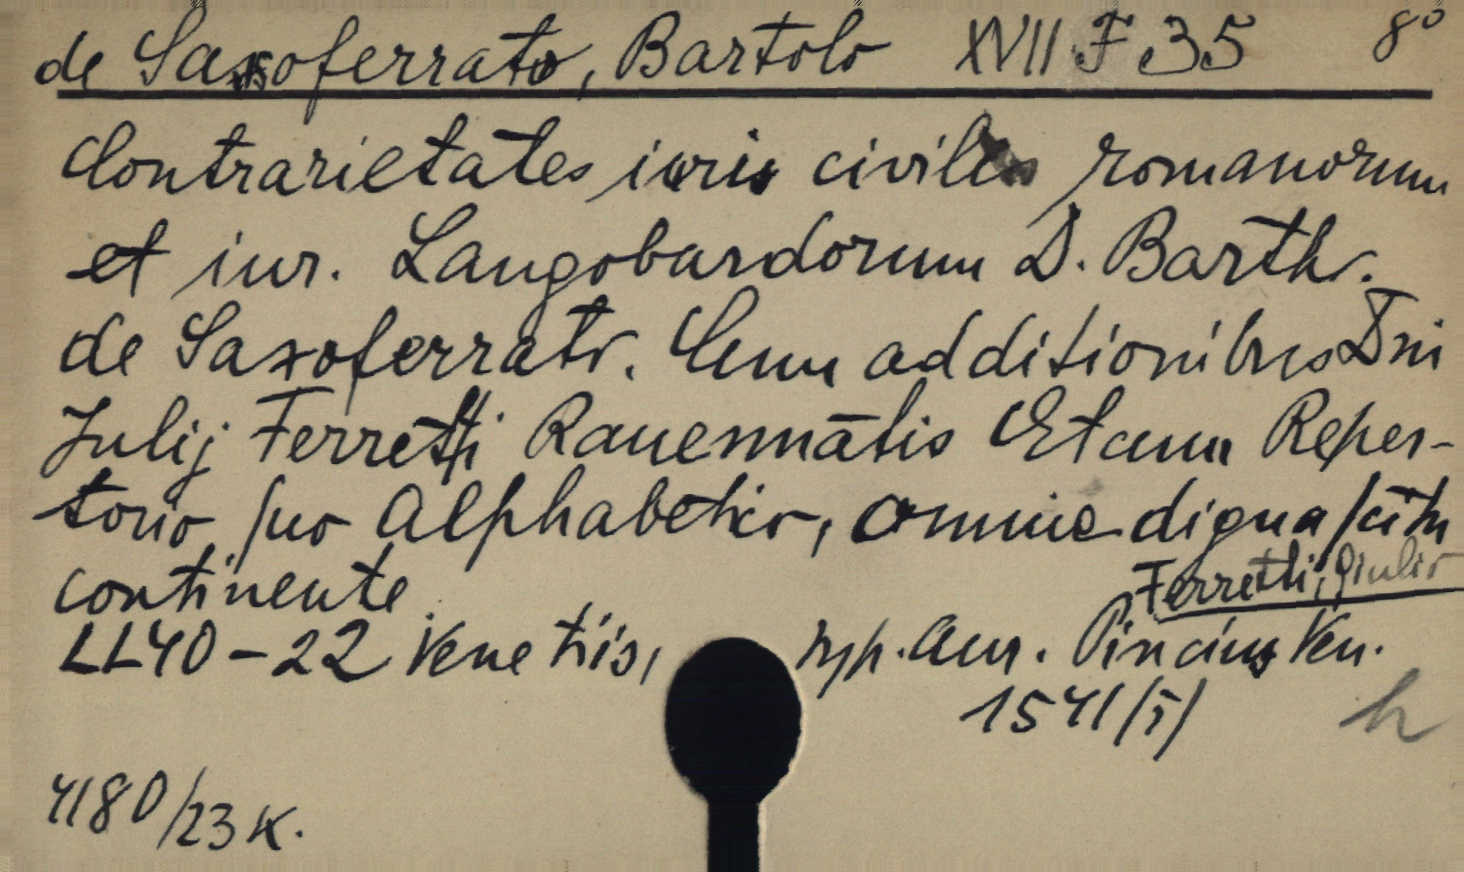 de Saxoferrato, Bartolo XVII F 35 8°
Contrarietates iuris civilis romanorum
et iur. Langobardorum D. Barth.
de Saxoferrato. Cum additionibus Dni
Julij Ferretti Rauennātis Et cum Reper-
torio suo Alphabetico, omnia digna scitu
continente.
Ferretti, Giulio
LL40-22 Venetiis, typ. Aur. Pincius Ven.
1541/i/ h
4180/23 K.